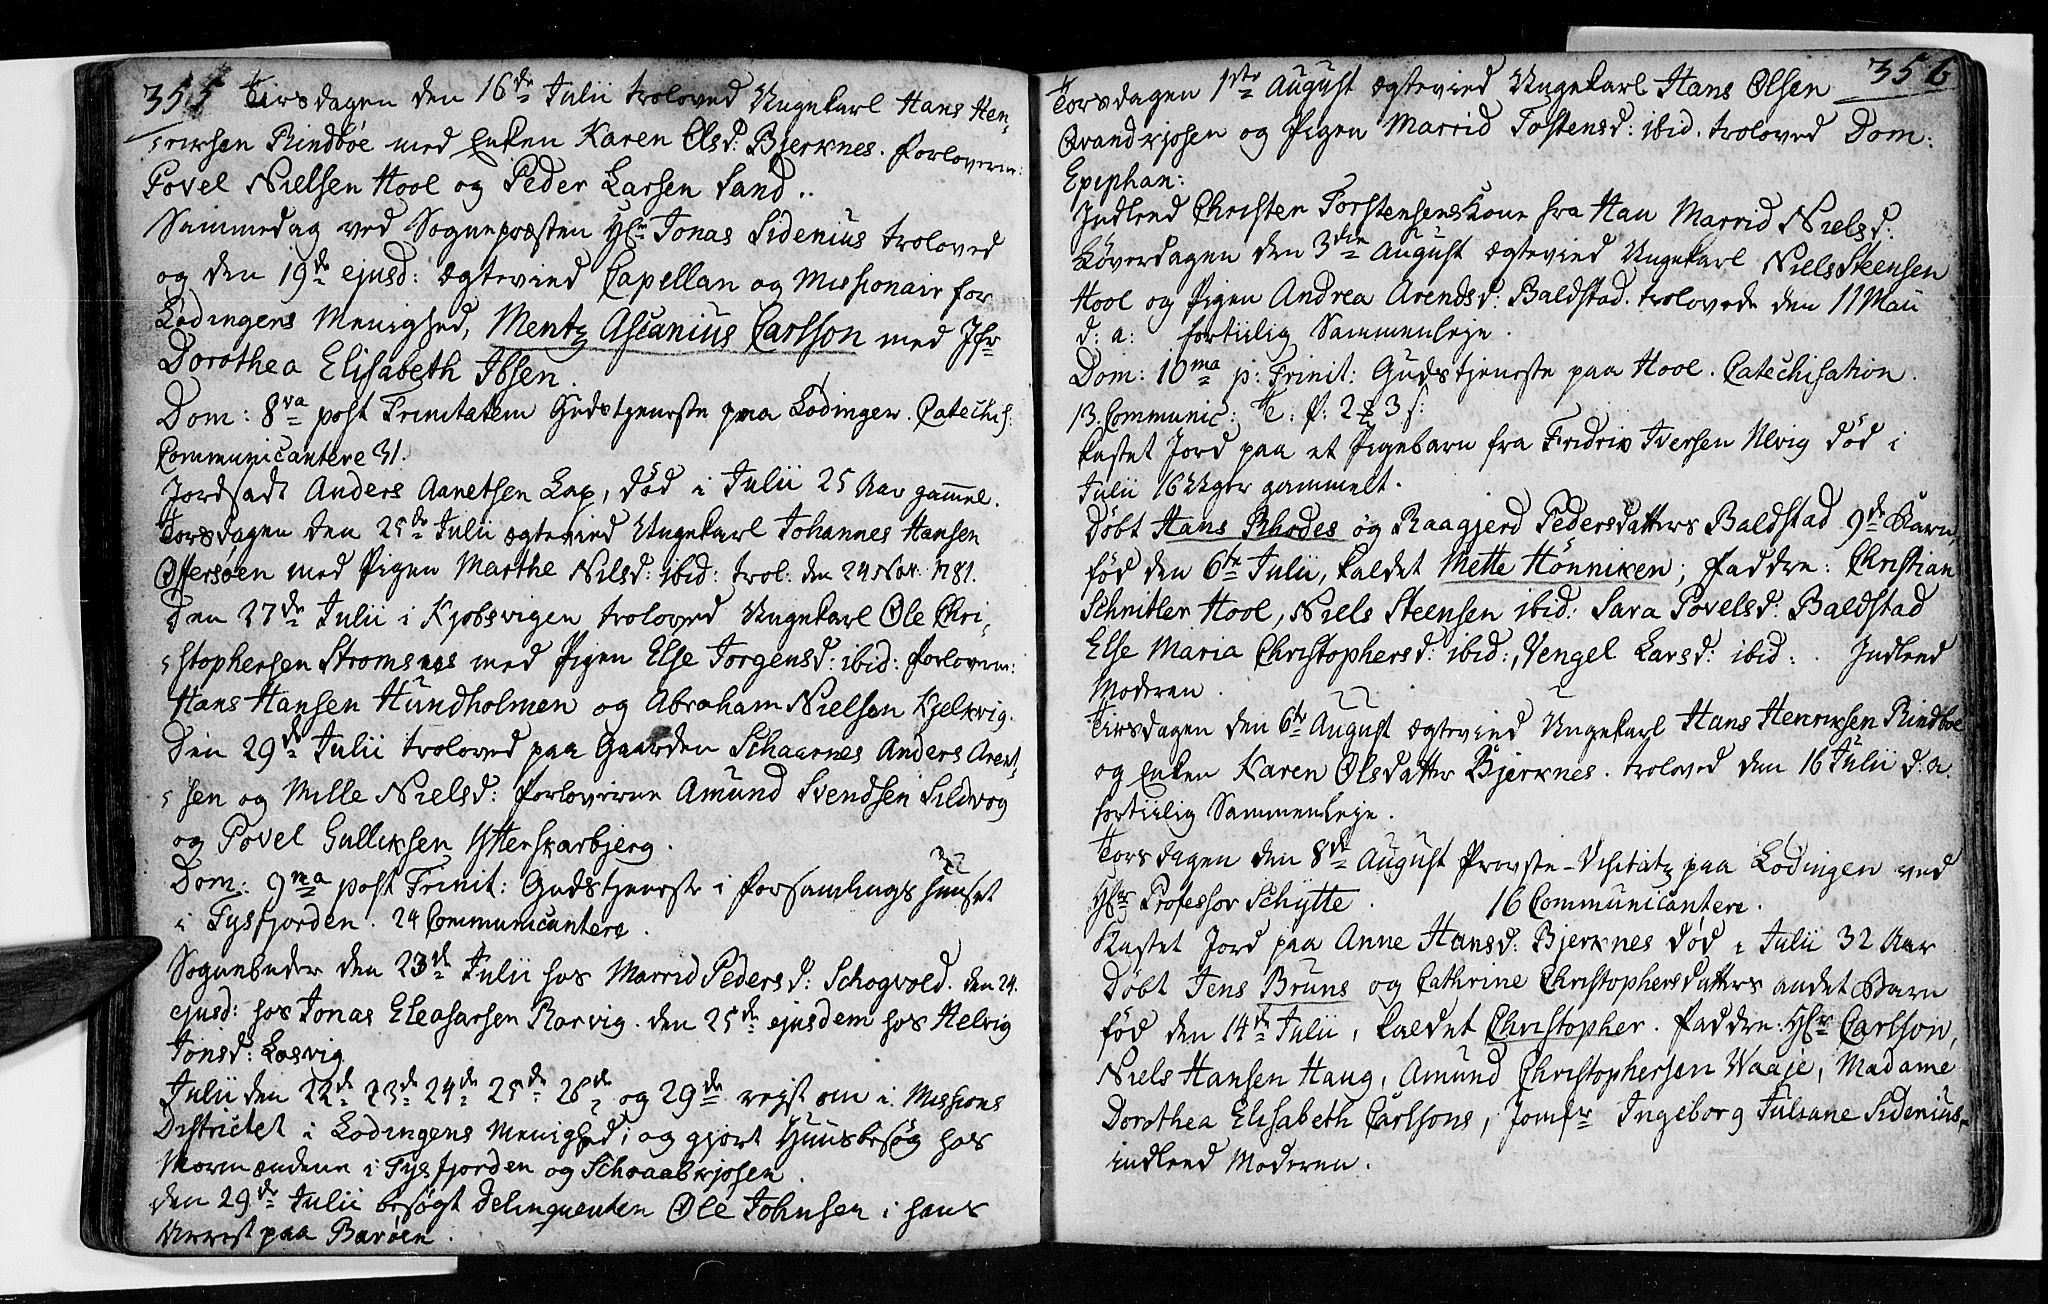 355 Tirsdagen den 16de Julii troloved Ungekarl Hans Hen-
riksen Rindbøe med Enken Karen Olsd: Bjerknes. Forloverne:
Povel Nielsen Hool og Peder Larsen Sand..
Sammedag ved Sognepræsten Hr. Jonas Sidenius troloved
og den 19de ejusd: ægtevied Capellan og Missionair for
Lødingens Menighed, Mentz Ascanius Carlson med Jfr
Dorothea Elisabeth Ibsen.
Dom: 8va post Trinitatem Gudstjeneste paa Lødingen. Catechis:
Communicantere 31.
Jordsadt Anders Aanetsen Lap, død i Julii 25 Aar gammel.
Torsdagen den 25de Julii ægtevied Ungekarl Johannes Hansen
Offersøen med Pigen Marthe Nilsd: ibid: trol: den 24 Nov: 1781.
Den 27de Julii i Kjobsvigen troloved Ungekarl Ole Chri-
stophersen Stromsnes med Pigen Else Jorgensd: ibid: Forloverne:
Hans Hansen Hundholmen og Abraham Nielsen Kjelkvig.
Den 29de Julii troloved paa Gaarden Schaarnes Anders Arent-
sen og Mille Nielsd: Forloverne Amund Svendsen Sildvog
og Povel Gulliksen Ytterskarbjerg.
Dom: 9na post Trinit: Gudstjeneste i Forsamlingshuuset
i Tysfjorden. 24 Communicantere.
Sognebuder den 23de Julii hos Marrid Pedersd: Schogvold. den 24.
ejusd: hos Jonas Eleasarsen Rorvig. den 25de ejusdem hos Helvig
Jonsd: Losvig
Julii den 22de 23de 24de 25de 26de og 29de rejst om i Missions
Districtet i Lødingens Menighed; og gjort Huusbesøg hos
Normændene i Tysfjorden og Schraabkjosen.
den 29de Julii besøgt Delinquenten Ole Johnsen i hans
Arrest paa Barøen.
356
Torsdagen 1ste August ægtevied Ungekarl Hans Olsen
Qvandkjosen og Pigen Marrid Tostensd: ibid. troloved Dom:
Epiphan:
Indleed Christen Torstensens Kone fra Hau Marrid Nielsd:
Løverdagen den 3die August ægtevied Ungekarl Niels Steensen
Hool og Pigen Andrea Arendsd: Baldstad. trolovede den 11 Maii
d: a: fortiilig Sammenleje.
Dom: 10ma p: Trinit: Gudstjeneste paa Hool. Catechisation.
13. Communic:
Kastet Jord paa et Pigebarn fra Fredrik Iversen Ulvig død i
Julii 16 Uger gammelt.
Døbt Hans Rhodes og Raagjerd Pedersdatters Baldstad 9de Barn,
fød den 6te Julii, kaldet Mette Hønniken; Faddre: Christian
Schnitler Hool, Niels Steensen ibid: Sara Povelsd: Baldstad
Else Maria Christophersd: ibid:, Vengel Larsd: ibid: . Indleed
Moderen.
Tirsdagen den 6te August ægtevied Ungekarl Hans Henriksen Rindbøe
og Enken Karen Olsdatter Bjerknes. troloved den 16 Julii d. a.
fortiilig Sammenleje.
Torsdagen den 8de August Provste-Visitatz paa Lødingen ved
Hr. Professor Schytte. 16 Communicantere.
Kastet Jord paa Anne Hansd: Bjerknes død i Julii 32 Aar
Døbt Jens Bruns og Cathrine Christophersdatters andet Barn
fød den 14de Julii, kaldet Christopher. Faddre: Hr. Carlson,
Niels Hansen Haug, Amund Christophersen Waaje, Madame
Dorothea Elisabeth Carlsons, Jomfr Ingeborg Juliane Sidenius,
indleed Moderen.